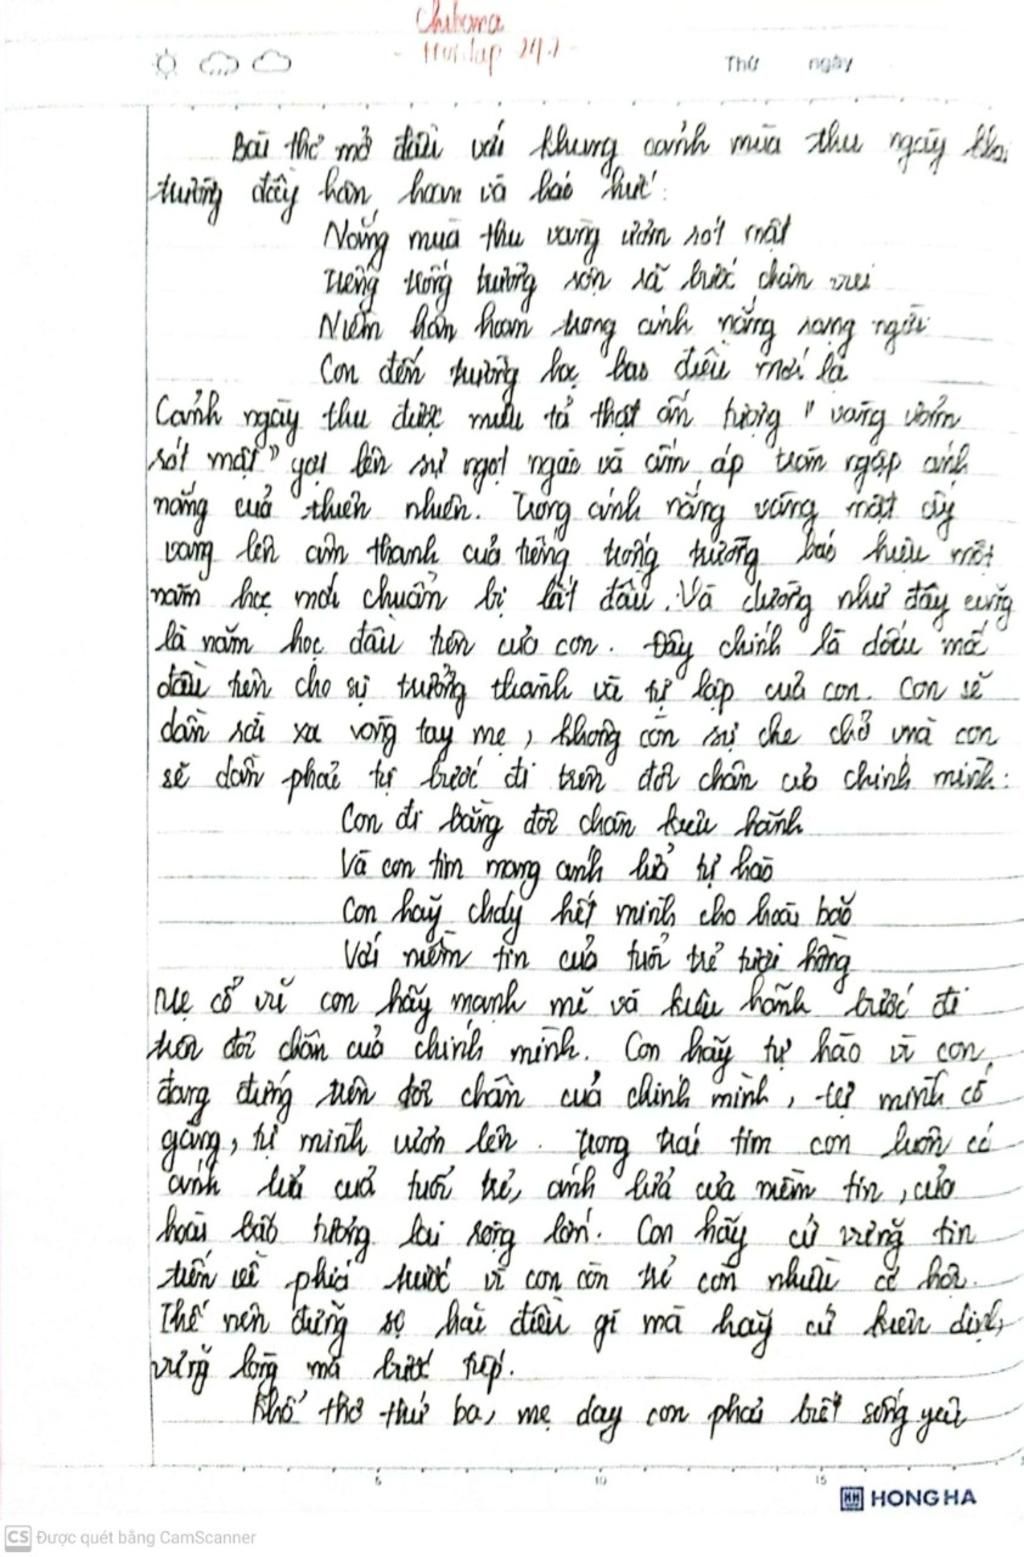 Thứ ngày
Bài thơ mở đầu với khung cảnh mùa thu ngày khai
trường đầy hân hoan và háo hức:
Nắng mùa thu vàng ươm rót mật
Tiếng trống trường rộn rã bước chân vui
Niềm hân hoan trong ánh nắng rạng ngời
Con đến trường học bao điều mới lạ
Cảnh ngày thu được miêu tả thật ấn tượng "vàng ươm
rót mật" gợi lên sự ngọt ngào và ấm áp tràn ngập ánh
nắng của thiên nhiên. Trong ánh nắng vàng mật ấy
vang lên âm thanh của tiếng trống trường báo hiệu một
năm học mới chuẩn bị bắt đầu. Và dường như đây cũng
là năm học đầu tiên của con. Đây chính là dấu mốc
đầu tiên cho sự trưởng thành và tự lập của con. Con sẽ
dần rời xa vòng tay mẹ, không còn sự che chở mà con
sẽ dần phải tự bước đi trên đôi chân của chính mình:
Con đi bằng đôi chân kiêu hãnh
Và con tim mang ánh lửa tự hào
Con hãy cháy hết mình cho hoài bão
Với niềm tin của tuổi trẻ tươi hồng
Mẹ cổ vũ con hãy mạnh mẽ và kiêu hãnh bước đi
trên đôi chân của chính mình. Con hãy tự hào vì con
đang đứng trên đôi chân của chính mình, tự mình cố
gắng, tự mình vươn lên. Trong trái tim con luôn có
ánh lửa của tuổi trẻ, ánh lửa của niềm tin, của
hoài bão tương lai rộng lớn. Con hãy cứ vững tin
tiến về phía trước vì con còn trẻ còn nhiều cơ hội.
Thế nên đừng sợ hãi điều gì mà hãy cứ kiên định,
vững lòng mà bước tiếp.
Khổ thơ thứ ba, mẹ dạy con phải biết sống yêu
5 10 15
HONG HA
CS Được quét bằng CamScanner